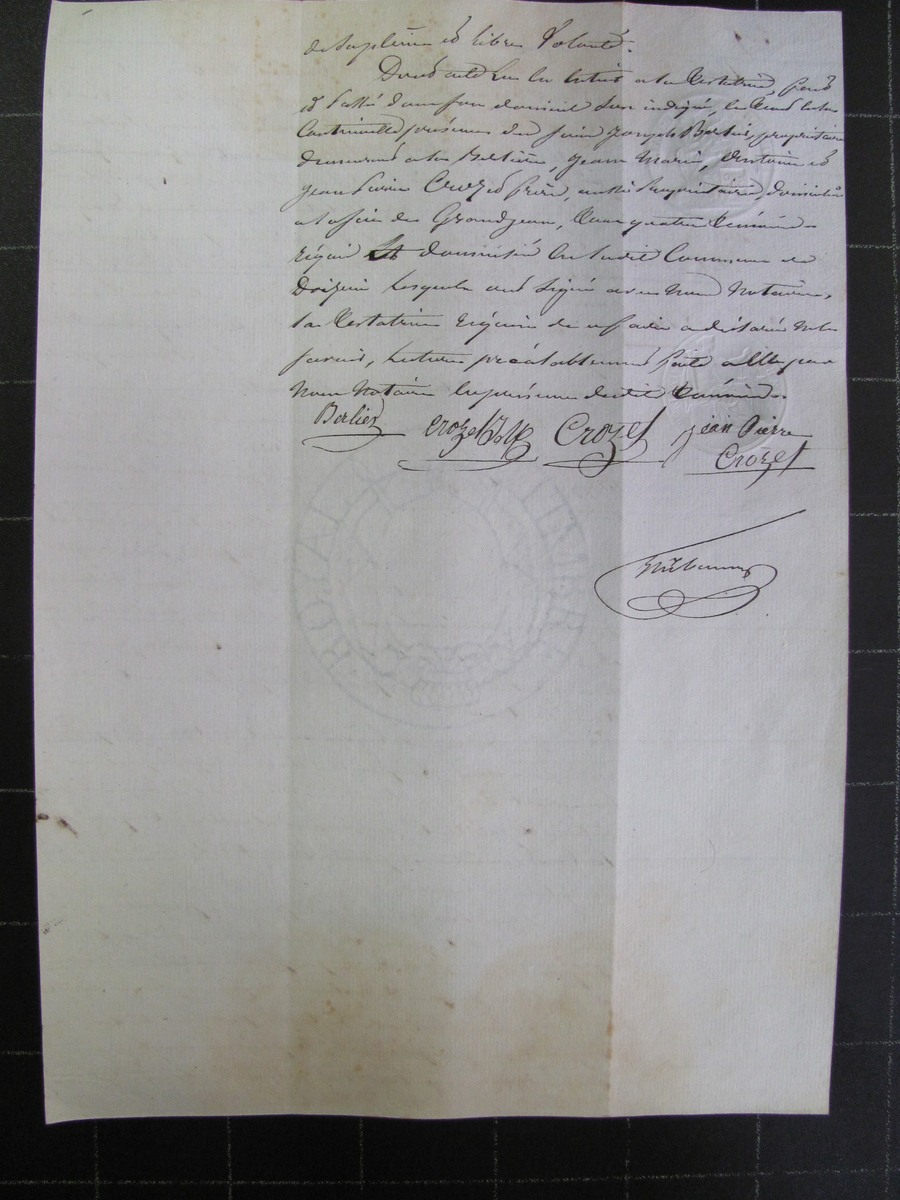 de sa pleine et libre volonté.
Dont acte lu en entier a la testatrice, fait
et passé dans son domicil sus indiqué, le tout en la
continuelle présence des sieurs Joseph Berlier, propriétaire
demeurant a la, Jean Marie, Antoine et
Jean Pierre Crozet frères, aussi propriétaires, domiciliés
a la de Grandjean, tous quatre témoins
requis et domiciliés en ladite Commune de
Doizieu lesquels ont signé avec nous Notaire,
la testatrice requise de ce faire a déclaré ne le
savoir, lecture préalablement faite a elle par
nous Notaire en présence desdits témoins.
Berlier Crozet Crozet jean Pierre
Crozet
ROYAL TIMBRE